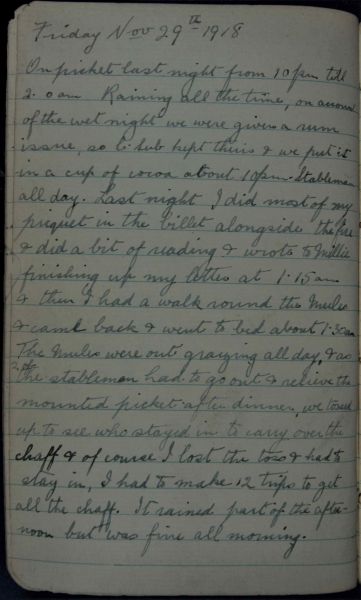 Friday Nov 29th 1918
On picket last night from 10 pm till
2.0 am Raining all the time, on account
of the wet night we were given a rum
issue, so C. Sub kept theirs & we put it
in a cup of cocoa about 10 pm. Stableman
all day. Last night I did most of my
picquet in the billet alongside the fire
& did a bit of reading & wrote to Millie
finishing up my letter at 1.15 am
& then I had a walk round the Mules
& came back & went to bed about 1.30 am
The Mules were out grazing all day, & as
the stableman had to go out & relieve the
mounted picket after dinner, we tossed
up to see who stayed in to carry over the
chaff & of course I lost the toss & had to
stay in, I had to make 12 trips to get
all the chaff. It rained part of the after-
noon but was fine all morning.